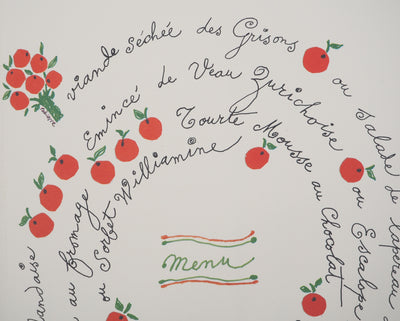 viande Séchée des Grisons
ou Salade de lapereau
Emincé de Veau Zurichoise
ou Escalope
au fromage
Tourte Mousse au Chocolat
ou Sorbet Williamine
Menu